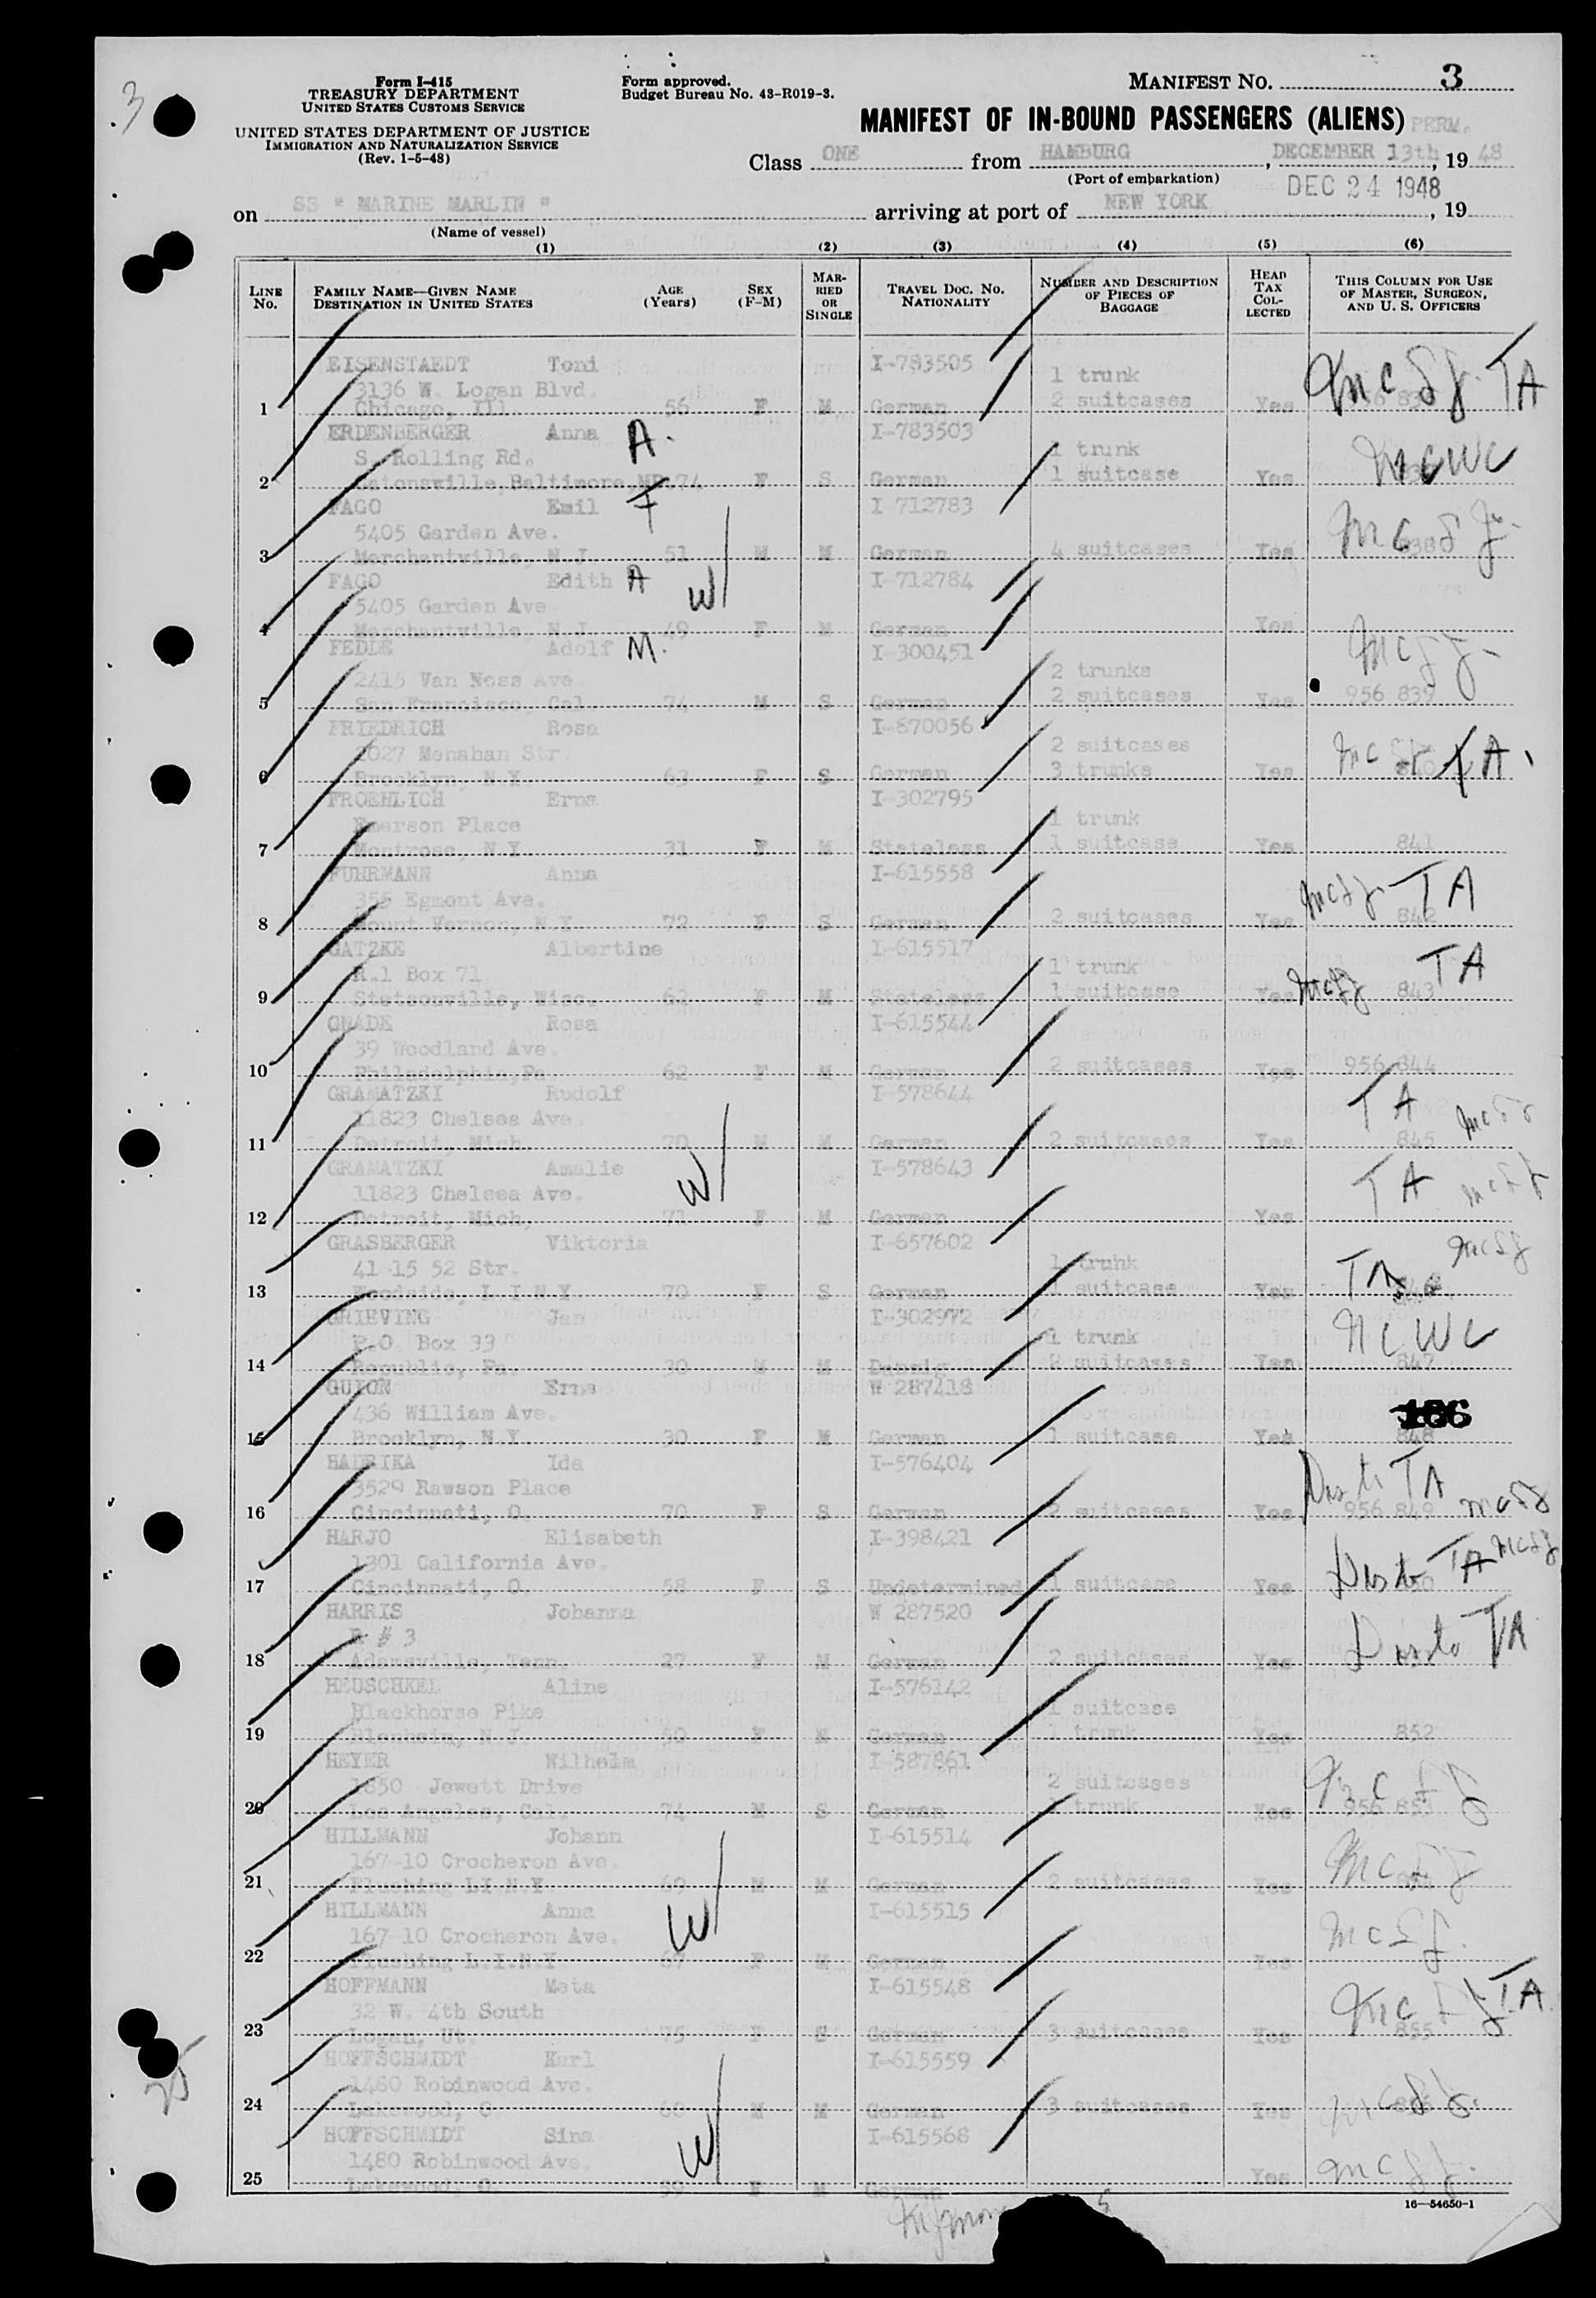 3
Form I-415
TREASURY DEPARTMENT
UNITED STATES CUSTOMS SERVICE
UNITED STATES DEPARTMENT OF JUSTICE
IMMIGRATION AND NATURALIZATION SERVICE
(Rev. 1-5-48)
Form approved.
Budget Bureau No. 43-R019-3.
MANIFEST NO. 3
MANIFEST OF IN-BOUND PASSENGERS (ALIENS) PERM.
Class ONE from HAMBURG, DECEMBER 13th, 19 48
(Port of embarkation)
DEC 24 1948
on SS " MARINE MARLIN " arriving at port of NEW YORK, 19
(Name of vessel)
(1) (2) (3) (4) (5) (6)
LINE No. FAMILY NAME—GIVEN NAME DESTINATION IN UNITED STATES AGE (Years) SEX (F-M) MARRIED OR SINGLE TRAVEL DOC. NO. NATIONALITY NUMBER AND DESCRIPTION OF PIECES OF BAGGAGE HEAD TAX COLLECTED THIS COLUMN FOR USE OF MASTER, SURGEON, AND U. S. OFFICERS
EISENSTAEDT Toni I-783505
3136 W. Logan Blvd. 1 trunk
1 Chicago, Ill. 56 F M German 2 suitcases Yes TA
ERDENBERGER Anna A. I-783503
S. Rolling Rd. 1 trunk
2 Catonsville, Baltimore MD 74 F S German 1 suitcase Yes
FAGO Emil F I-712783
5405 Garden Ave.
3 Merchantville, N.J. 51 M M German 4 suitcases Yes 838
FAGO Edith A W/ I-712784
5405 Garden Ave
4 Merchantville, N.J. 49 F M German Yes
FEDLE Adolf M. I-300451
2415 Van Ness Ave 2 trunks
5 San Francisco, Cal. 74 M S German 2 suitcases Yes 956 839
FRIEDRICH Rosa I-670056
2027 Menahan Str. 2 suitcases
6 Brooklyn, N.Y. 63 F S German 3 trunks Yes TA
FROEHLICH Erna I-302795
Emerson Place 1 trunk
7 Montrose, N.Y. 31 F M Stateless 1 suitcase Yes 841
FUHRMANN Anna I-615558
355 Egmont Ave. TA
8 Mount Vernon, N.Y. 72 F S German 2 suitcases Yes 842
GATZKE Albertine I-615517
R.1 Box 71 1 trunk TA
9 Stetsonville, Wisc. 62 F M Stateless 1 suitcase Yes 843
GNADE Rosa I-615544
39 Woodland Ave.
10 Philadelphia, Pa 62 F M German 2 suitcases Yes 956 844
GRAMATZKI Rudolf I-578644
11823 Chelsea Ave. TA
11 Detroit, Mich. 70 M M German 2 suitcases Yes 845
GRAMATZKI Amalie W/ I-578643
11823 Chelsea Ave. TA
12 Detroit, Mich. 71 F M German Yes
GRASBERGER Viktoria I-657602
41-15 52 Str. 1 trunk TA
13 Woodside, L I N Y 70 F S German 1 suitcase Yes
GRIEVING Jan I-302972
P.O. Box 33 1 trunk
14 Republic, Pa. 30 M M Danzig 2 suitcases Yes 847
GUION Erna W 287418
436 William Ave. 186
15 Brooklyn, N.Y. 30 F M German 1 suitcase Yes 848
HADRIKA Ida I-576404
3529 Rawson Place TA
16 Cincinnati, O. 70 F S German 2 suitcases Yes 956 849
HARJO Elisabeth I-398421
1301 California Ave. TA
17 Cincinnati, O. 58 F S Undetermined 1 suitcase Yes
HARRIS Johanna W 287520
R # 3 TA
18 Adamsville, Tenn. 27 F M German 2 suitcases Yes
HEUSCHKEL Aline I-576142
Blackhorse Pike 1 suitcase
19 Blenheim, N.J. 50 F M German 1 trunk Yes 852
HEYER Wilhelm I-587861
1850 Jewett Drive 2 suitcases
20 Los Angeles, Cal. 74 M S German trunk Yes 956 853
HILLMANN Johann I-615514
167-10 Crocheron Ave.
21 Flushing LI.N.Y 69 M M German 2 suitcases Yes
HILLMANN Anna W/ I-615515
167-10 Crocheron Ave.
22 Flushing L.I.N.Y 67 F M German Yes
HOFFMANN Meta I-615548
32 W. 4th South TA
23 Logan, Ut. 75 F S German 3 suitcases Yes 855
HOFFSCHMIDT Karl I-615559
1480 Robinwood Ave.
24 Lakewood, O. 60 M M German 3 suitcases Yes
HOFFSCHMIDT Sina W/ I-615568
1480 Robinwood Ave.
25 Lakewood, O. 59 F M German Yes
16—54650-1